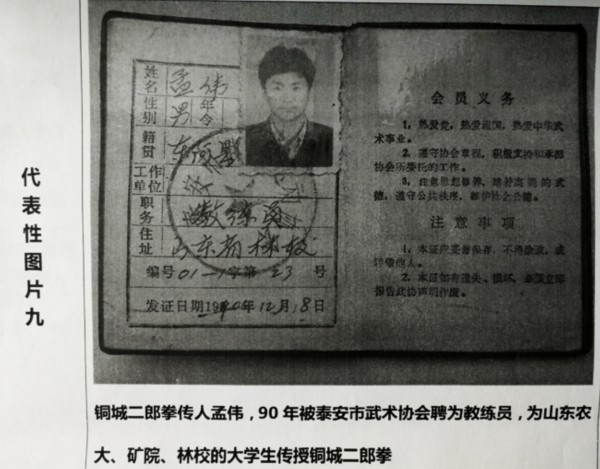 代表性图片九
姓名 孟伟
性别 男 年令
籍贯 东阿县
工作单位
职务 教练员
住址 山东省林校
编号01-1字第23号
发证日期1990年12月18日
会员义务
1、热爱党，热爱祖国，热爱中华武
术事业。
2、遵守协会章程，积极支持和承担
协会所委托的工作。
3、注意思想修养，培养高尚的武
德，遵守公共秩序，维护社会公德。
注意事项
1、本证应妥善保存，不得涂改，或
转借他人。
2、本证如有遗失、损坏，必须立即
报告武协声明作废。
铜城二郎拳传人孟伟，90年被泰安市武术协会聘为教练员，为山东农
大、矿院、林校的大学生传授铜城二郎拳